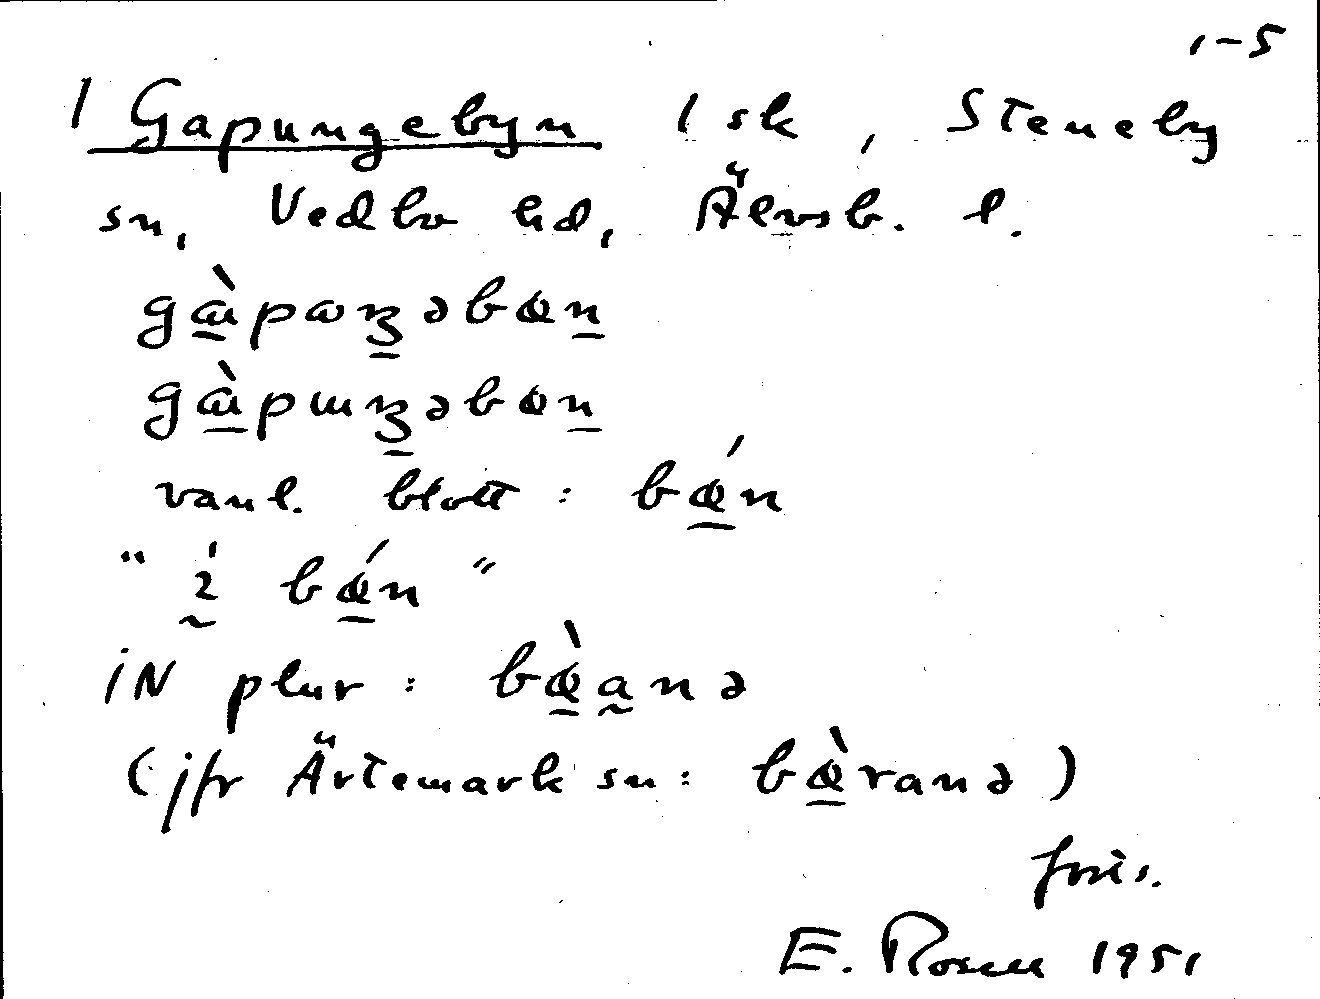 1-5
1 Gapungebyn 1 sk, Steneby
sn, Vedbo hd, Älvsb. l.
gɑ̀pɷŋəbɵn
gɑ̀pɯŋəbɵn
vanl. blott : bɵ́n
" í bɵ́n "
iN plur : bɵ̀anə
(jfr Ärtemark sn: bɵ̀ranə)
E. Rosell 1951